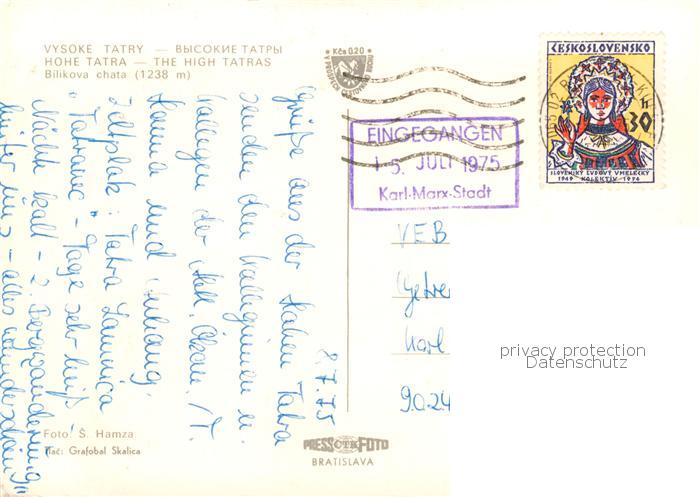 VYSOKÉ TATRY — ВЫСОКИЕ ТАТРЫ
HOHE TATRA — THE HIGH TATRAS
Bilíkova chata (1238 m)
Kčs 0,20
ČESKOSLOVENSKO
30
h
SLOVENSKÝ ĽUDOVÝ UMELECKÝ
1949 KOLEKTÍV 1974
EINGEGANGEN
15. JULI 1975
Karl-Marx-Stadt
8.7.75
Grüße aus der Hohen Tatra
senden den Kolleginnen u.
Kollegen der Abt. Ökon. /T.
Hanna und
Zeltplatz: Tatra Lomnica
"Tatranec" - Tage sehr heiß
Nächte kalt - 2. Bergwanderung
hinter uns - alles wunderschön!
VEB
Getrie
Karl
9024
privacy protection
Datenschutz
Foto: Š. Hamza
Tlač: Grafobal Skalica
PRESSFOTO
BRATISLAVA